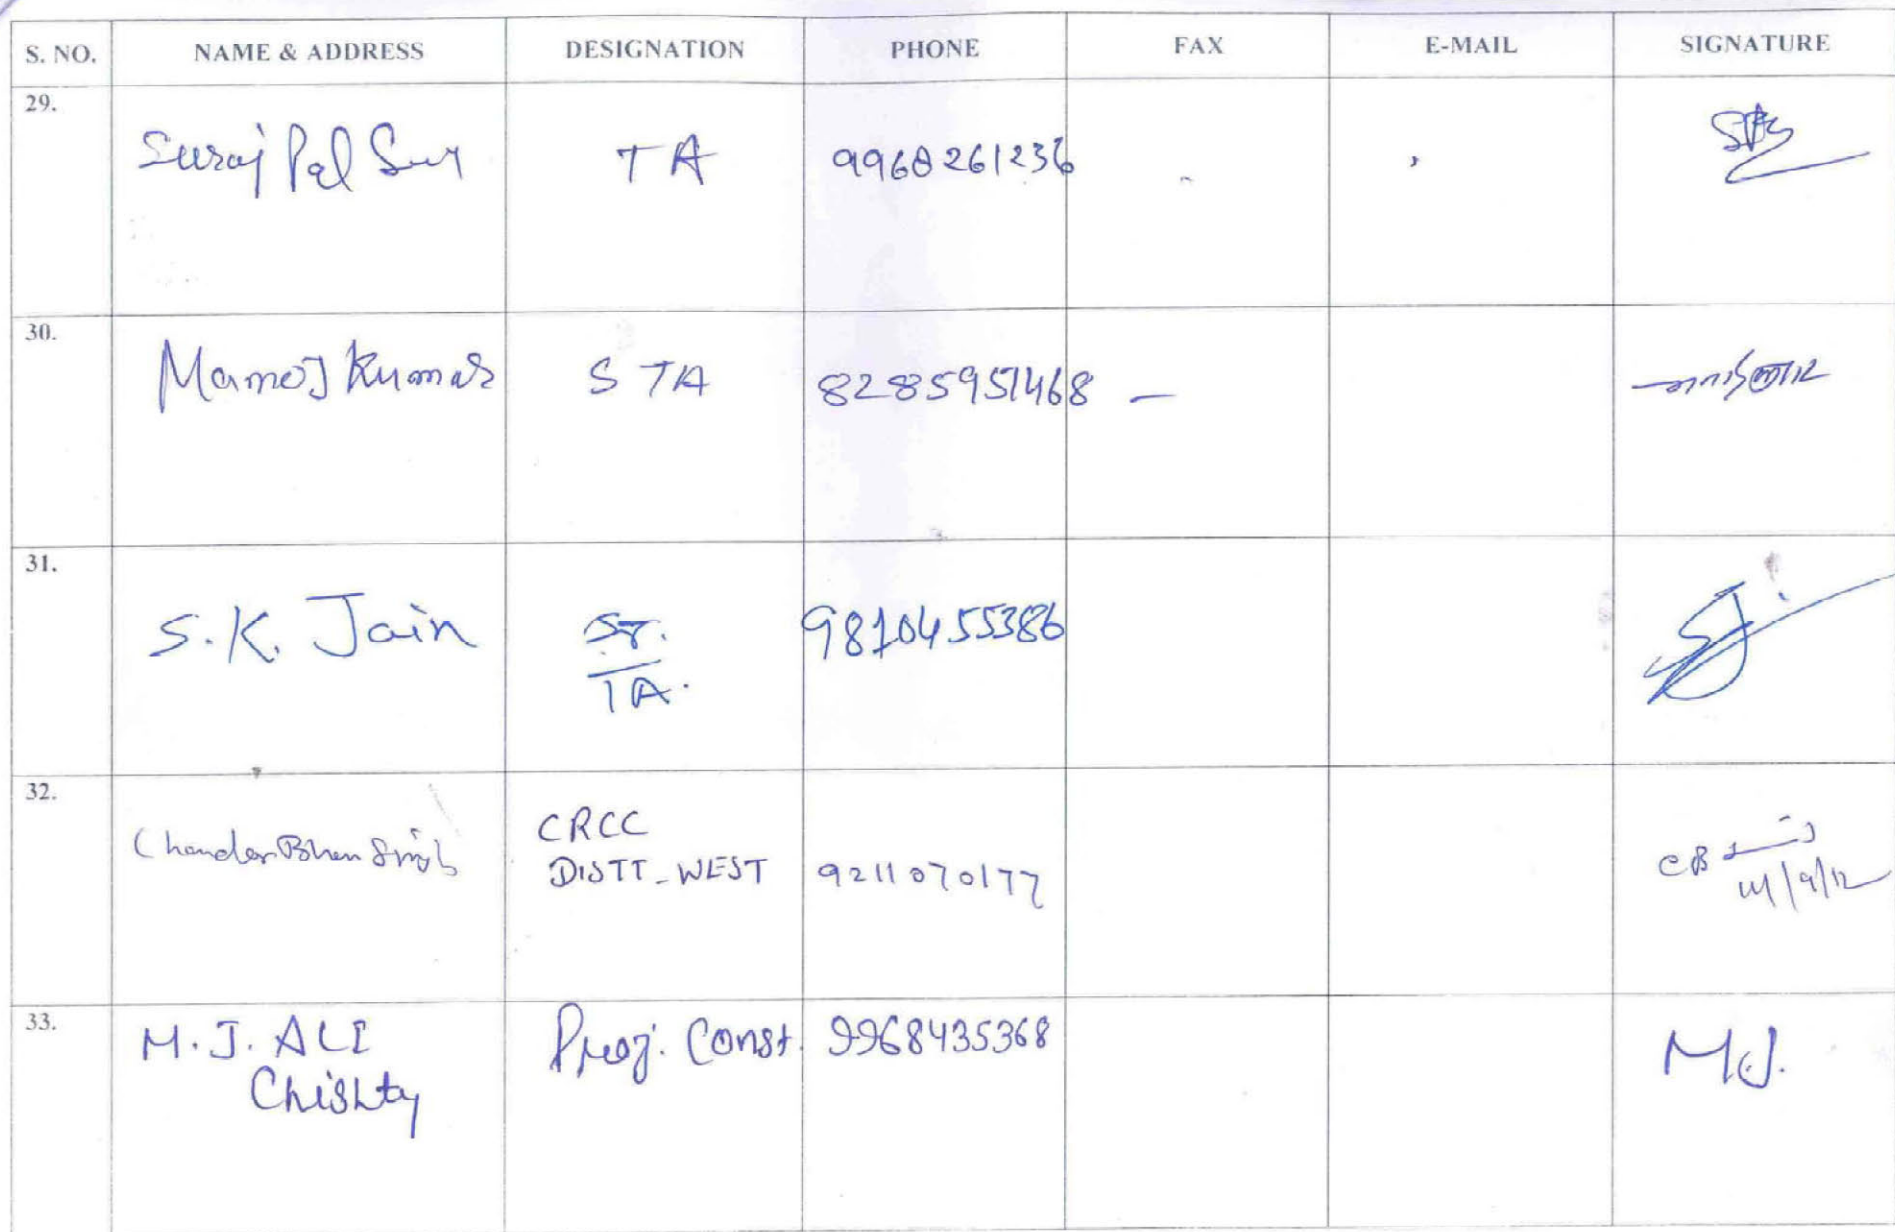 S. NO. NAME & ADDRESS DESIGNATION PHONE FAX E-MAIL SIGNATURE
29. Suraj Pal TA 9968261236 SPS
30. Manoj Kumar STA 8285951468 —
31. S.K. Jain Sr. 9810455386 SJ
TA.
32. Chander Bhan Singh CRCC
DISTT-WEST 9211070177 CB
33. M.J. ALI Proj. Const. 9968435368 M.J.
Chishty